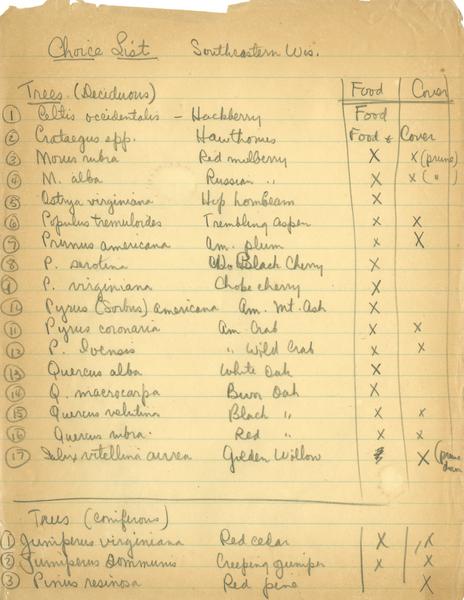 Choice List Southeastern Wis.
Trees (Deciduous) Food Cover
1 Celtis occidentalis - Hackberry Food
2 Crataegus spp. Hawthornes Food + Cover
3 Morus rubra Red mulberry X X (prune)
4 M. alba Russian " X X ( " )
5 Ostrya virginiana Hop hornbeam X
6 Populus tremuloides Trembling aspen X X
7 Prunus americana Am. plum X X
8 P. serotina Black Cherry X
9 P. virginiana Choke cherry X
10 Pyrus (Sorbus) americana Am. Mt. Ash X
11 Pyrus coronaria Am Crab X X
12 P. Ioensis " Wild Crab X X
13 Quercus alba White Oak X
14 Q. macrocarpa Burr Oak X
15 Quercus velutina Black " X X
16 Quercus rubra. Red " X X
17 Salix vitellina aurea Golden Willow X (prune down)
Trees (coniferous)
1 Juniperus virginiana Red cedar X X
2 Juniperus Communis Creeping juniper X X
3 Pinus resinosa Red pine X